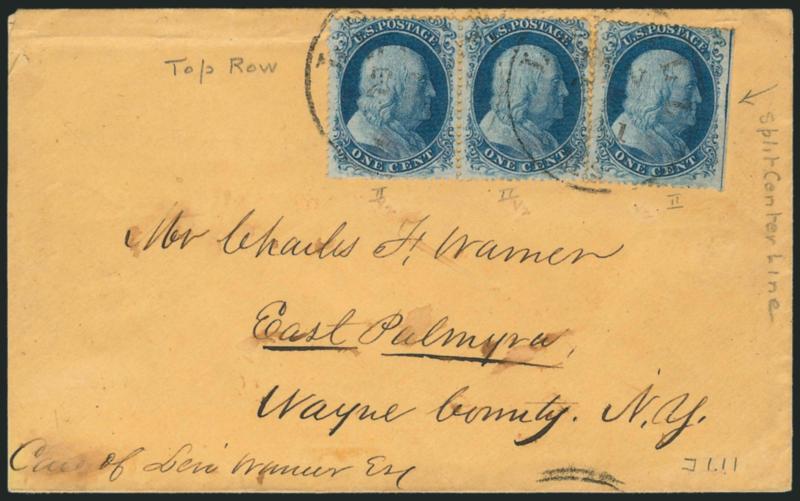 U.S. POSTAGE U.S. POSTAGE U.S. POSTAGE
Top Row
ONE CENT ONE CENT ONE CENT
II II II
Split Center Line
Mr Charles F. Warner
East Palmyra,
Wayne County. N.Y.
Care of Levi Warner Esq